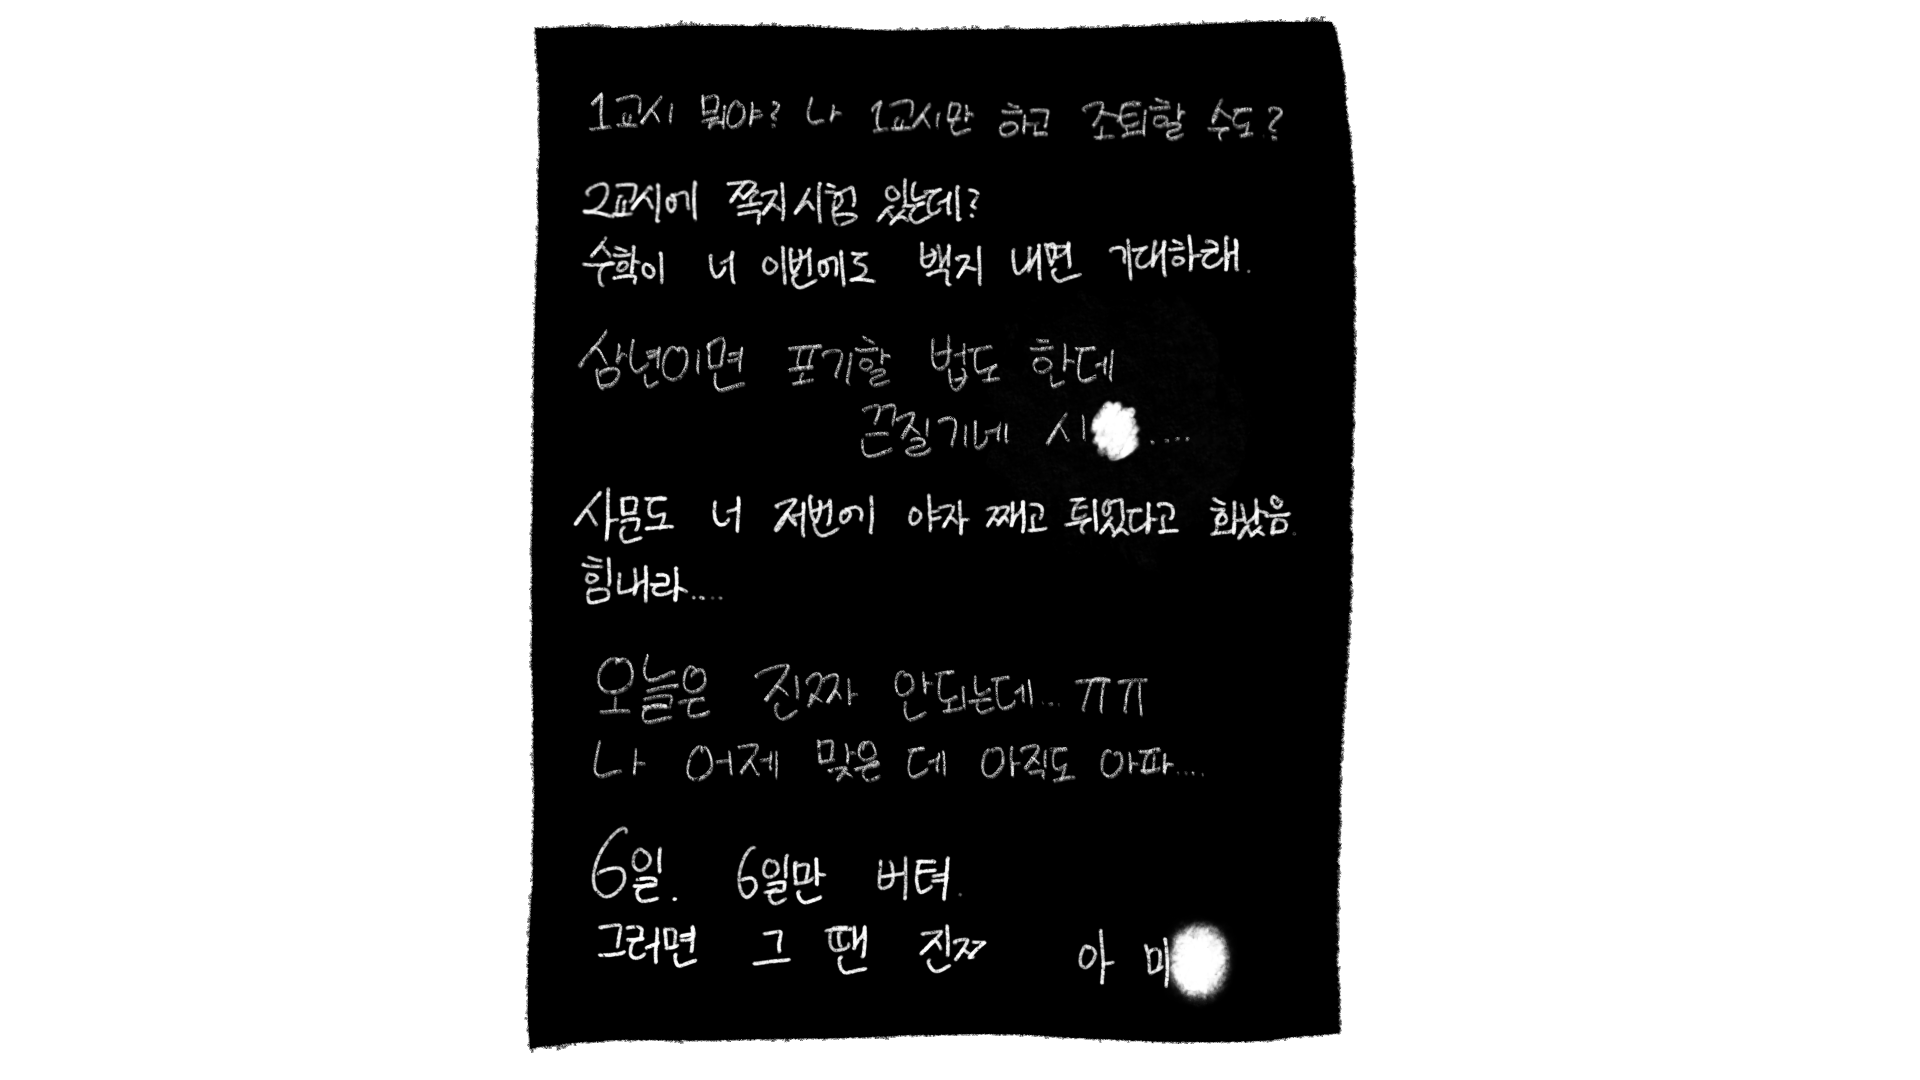 1교시 뭐야? 나 1교시만 하고 조퇴할 수도?
2교시에 쪽지시험 있는데?
수학이 너 이번에도 백지 내면 기대하래.
삼년이면 포기할 법도 한데
끈질기네 시....
사문도 너 저번에 야자 째고 튀었다고 화났음.
힘내라....
오늘은 진짜 안되는데...ㅠㅠ
나 어제 맞은 데 아직도 아파....
6일. 6일만 버텨.
그러면 그 땐 진ㅉ 아 미